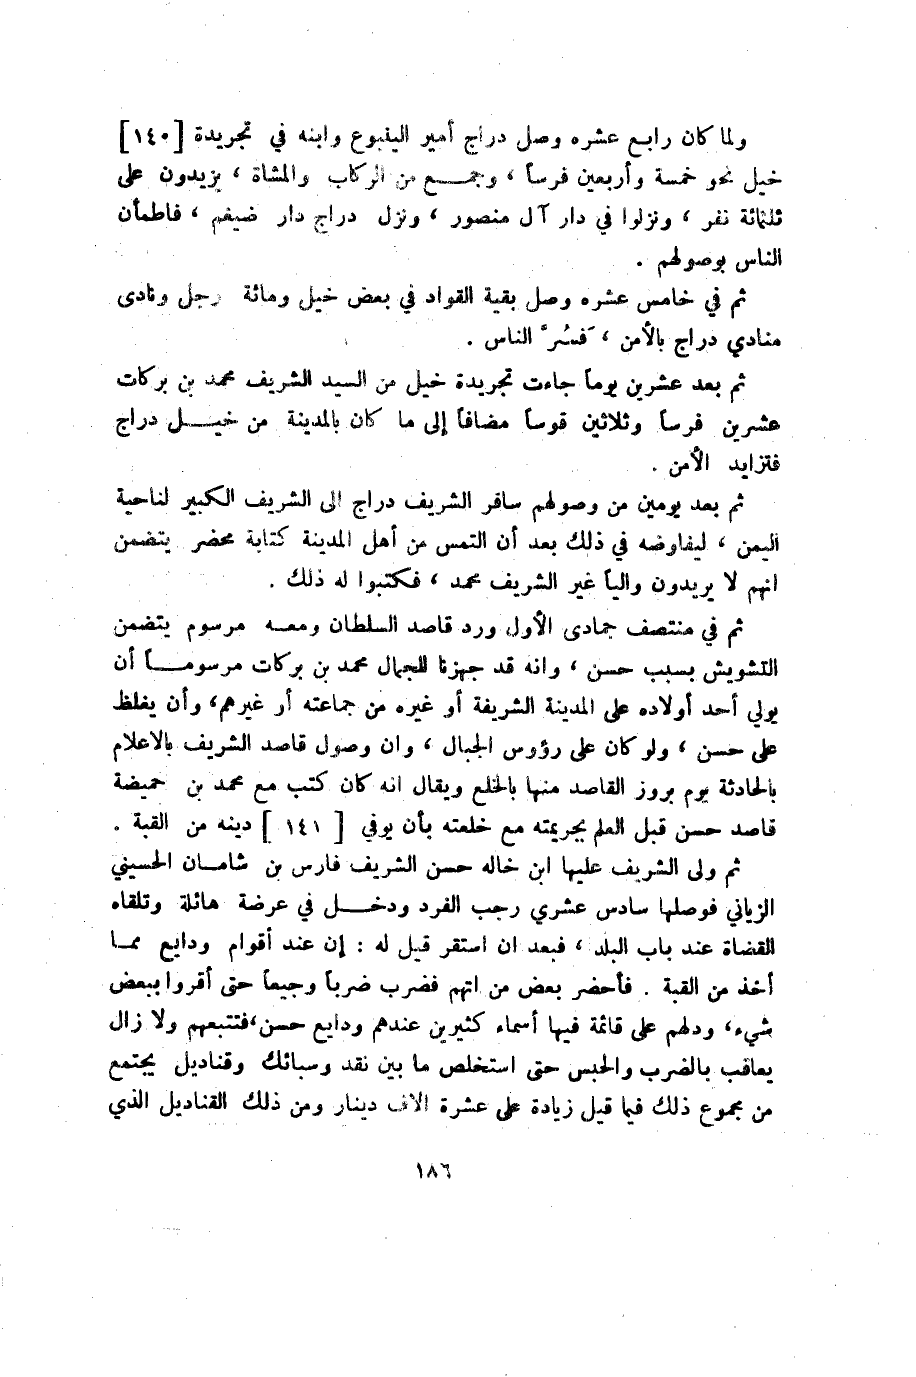 ولما كان رابع عشره وصل دراج أمير الينبوع وابنه في تجريدة [١٤٠]
خيل نحو خمسة وأربعين فرساً ، وجمـــع من الركاب والمشاة ، يزيدون على
ثلثائة نفر ، ونزلوا في دار آل منصور ، ونزل دراج دار ضيغم ، فاطمأن
الناس بوصولهم .
ثم في خامس عشره وصل بقية القواد في بعض خيل ومائة رجل ونادى
منادي دراج بالأمن ، فَسُرَّ الناس .
ثم بعد عشرين يوماً جاءت تجريدة خيل من السيد الشريف محمد بن بركات
عشرين فرساً وثلاثين قوساً مضافاً إلى ما كان بالمدينة من خيـــل دراج
فتزايد الأمن .
ثم بعد يومين من وصولهم سافر الشريف دراج الى الشريف الكبير لناحية
اليمن ، ليفاوضه في ذلك بعد أن التمس من أهل المدينة كتابة محضر يتضمن
انهم لا يريدون والياً غير الشريف محمد ، فكتبوا له ذلك .
ثم في منتصف جمادى الأول ورد قاصد السلطان ومعــه مرسوم يتضمن
التشويش بسبب حسن ، وانه قد جهزنا للجمال محمد بن بركات مرسومــاً أن
يولي أحد أولاده على المدينة الشريفة أو غيره من جماعته أر غيرهم، وأن يغلظ
على حسن ، ولو كان على رؤوس الجبال ، وان وصول قاصد الشريف بالاعلام
بالحادثة يوم بروز القاصد منها بالخلع ويقال انه كان كتب مع محمد بن حميضة
قاصد حسن قبل العلم بجريمته مع خلعته بأن يوفي [ ١٤١ ] دينه من القبة .
ثم ولى الشريف عليها ابن خاله حسن الشريف فارس بن شامــان الحسيني
الزياني فوصلها سادس عشري رجب الفرد ودخـــل في عرضة هائلة وتلقاه
القضاة عند باب البلد ، فبعد ان استقر قيل له : إن عند أقوام ودايع ممــا
أخذ من القبة . فأحضر بعض من اتهم فضرب ضرباً وجيعاً حتى أقروا ببعض
شيء، ودلهم على قائمة فيها أسماء كثيرين عندهم ودايع حسن،فتتبعهم ولا زال
يعاقب بالضرب والحبس حتى استخلص ما بين نقد وسبائك وقناديل يجتمع
من مجموع ذلك فيما قيل زيادة على عشرة الاف دينار ومن ذلك القناديل الذي
١٨٦